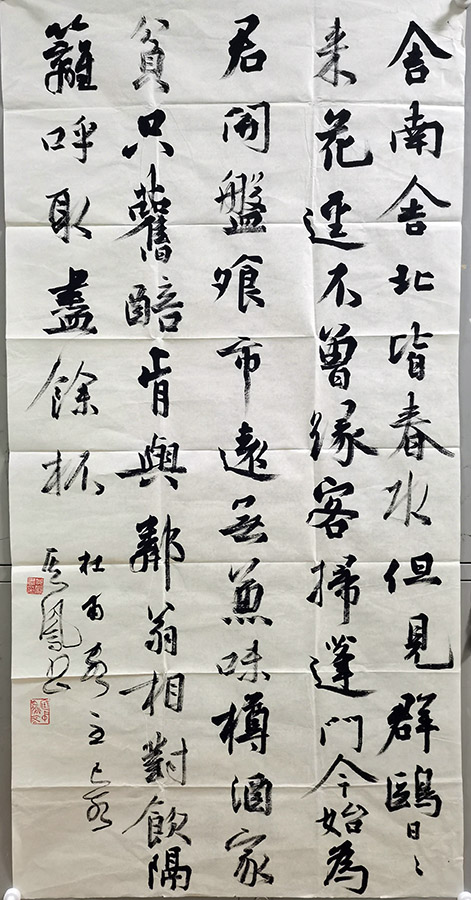 舍南舍北皆春水但見群鷗日〻
来花逕不曾緣客掃蓬門今始為
君開盤飧市遠無兼味樽酒家
貧只舊醅肯與鄰翁相對飲隔
籬呼取盡餘杯
杜甫客至己亥
鳳書